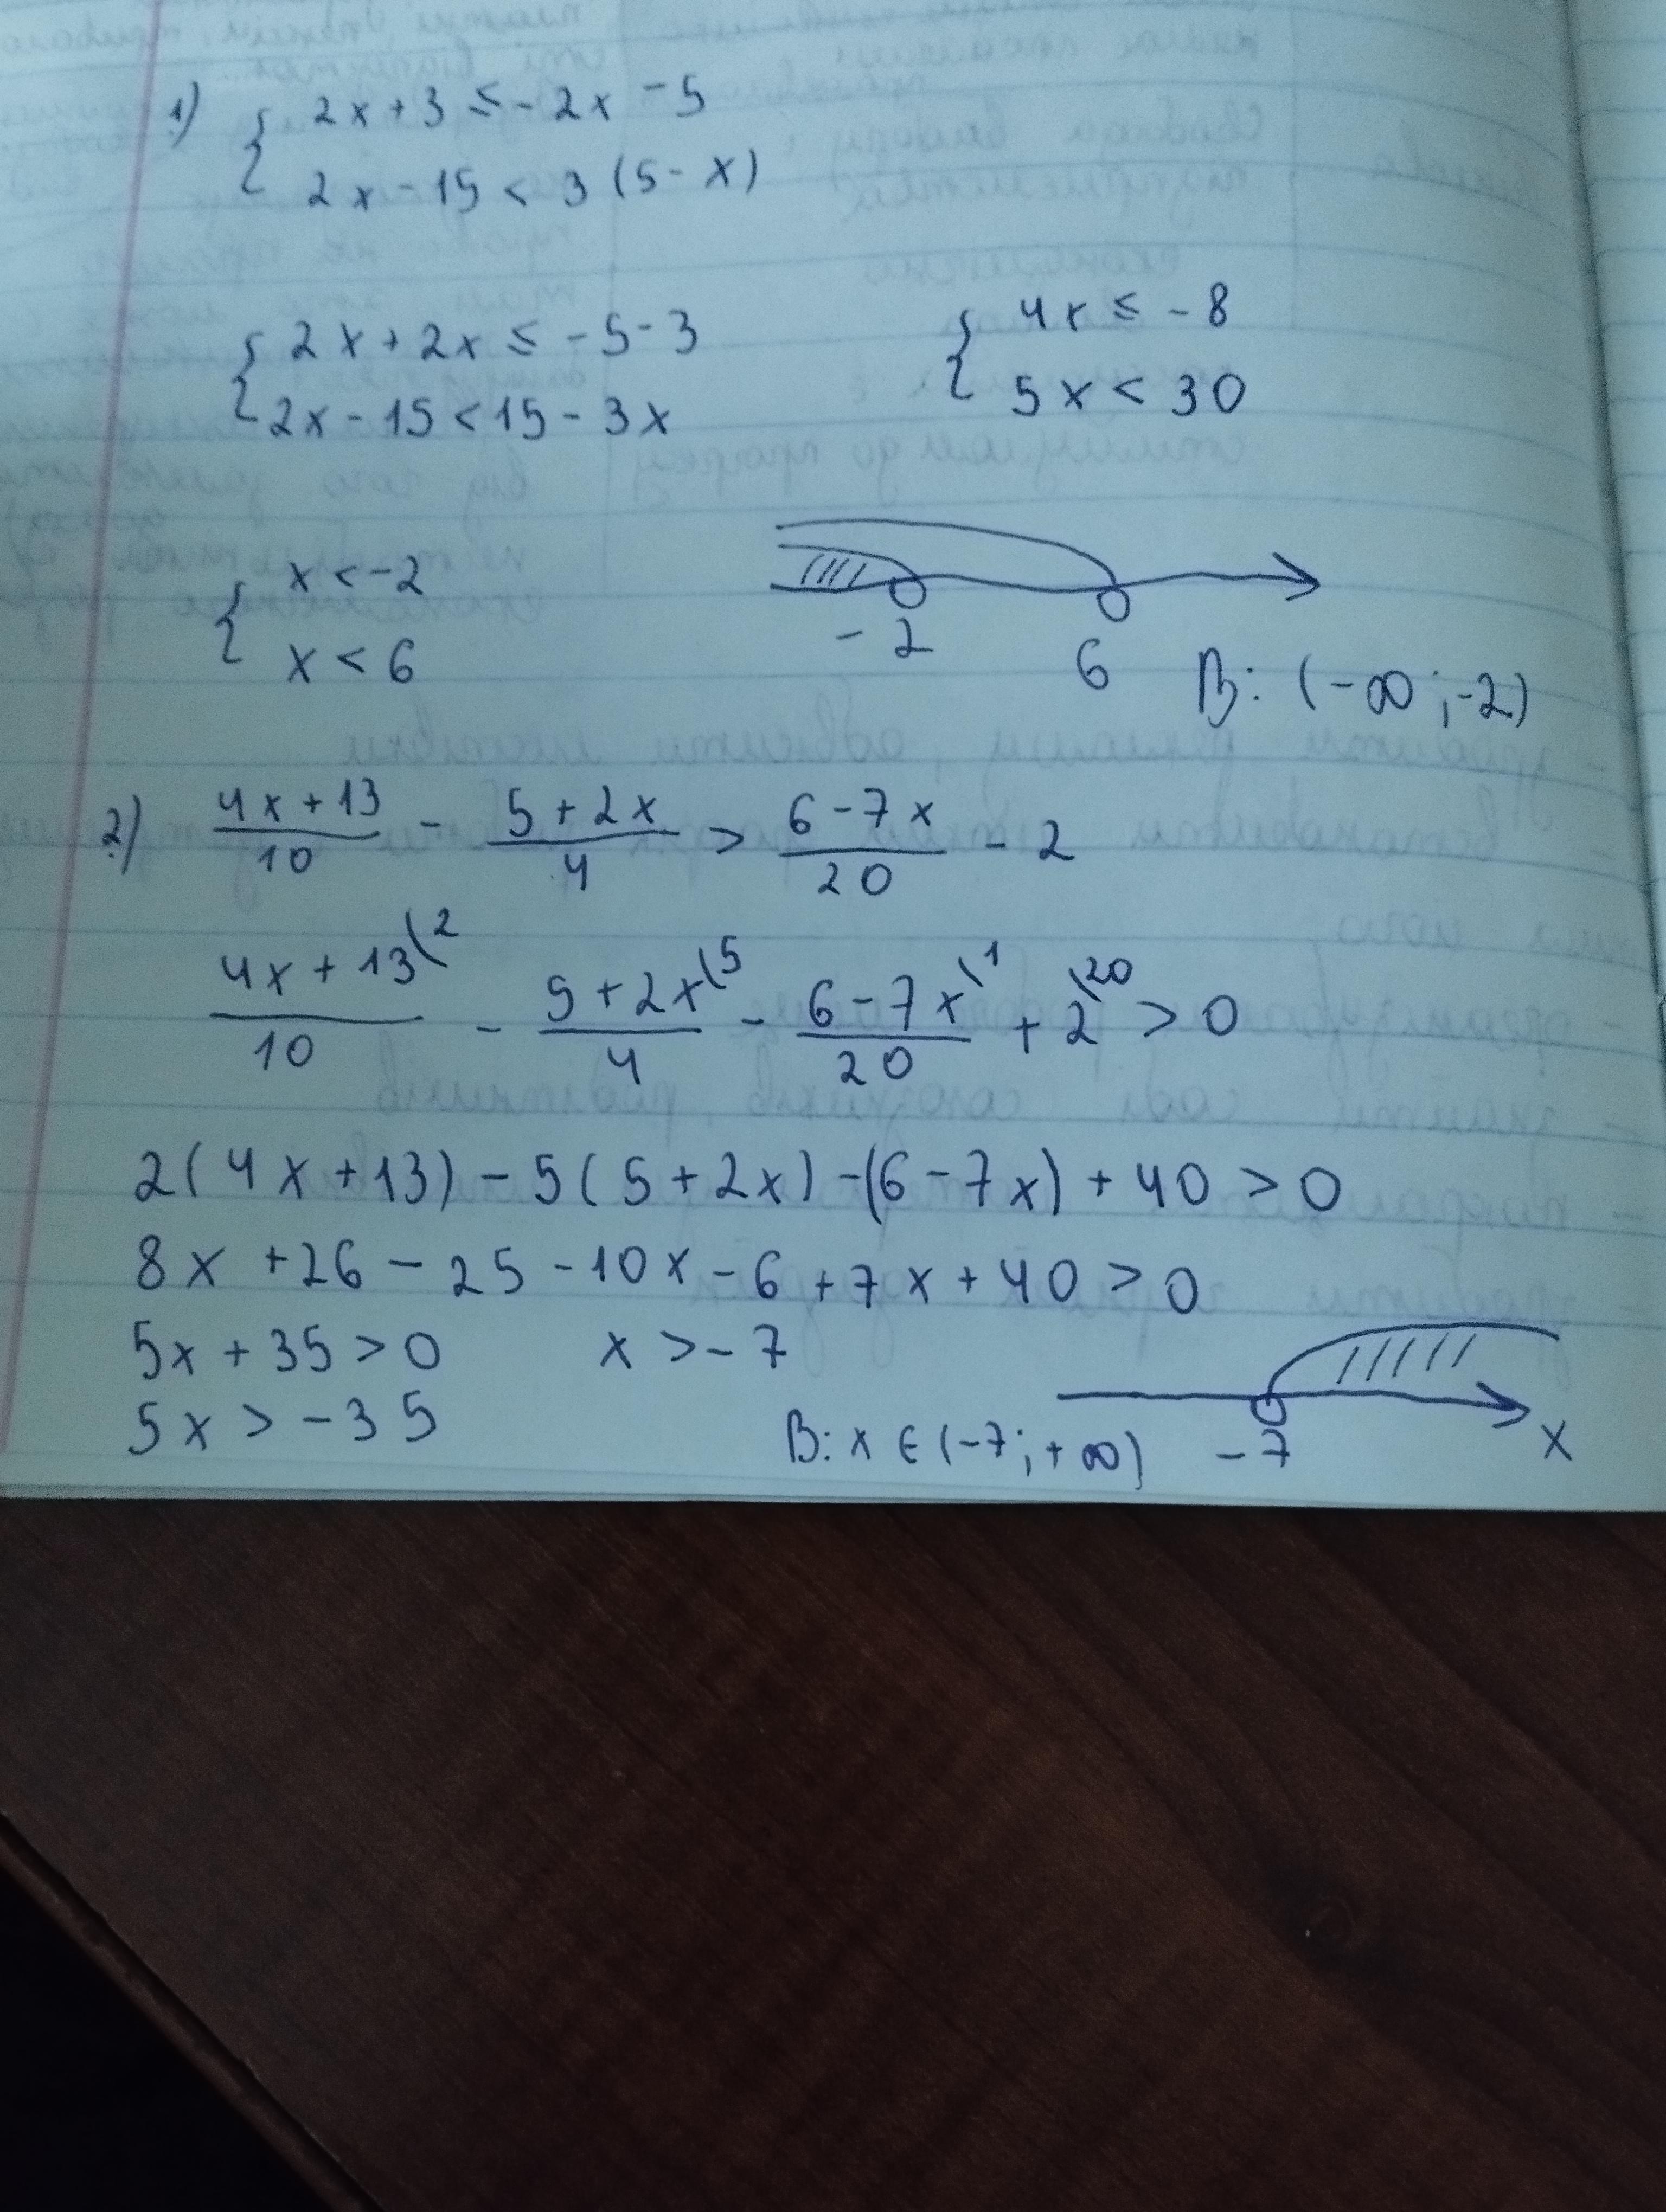 1) { 2x + 3 ≤ - 2x - 5
2x - 15 < 3 (5 - x)
{ 2x + 2x ≤ - 5 - 3
2x - 15 < 15 - 3x
{ 4x ≤ - 8
5x < 30
{ x < -2
x < 6
-2 6
В: (-∞; -2)
2) (4x + 13)/10 - (5 + 2x)/4 > (6 - 7x)/20 - 2
(4x + 13)/10 \2 - (5 + 2x)/4 \5 - (6 - 7x)/20 \1 + 2 \20 > 0
2(4x + 13) - 5(5 + 2x) - (6 - 7x) + 40 > 0
8x + 26 - 25 - 10x - 6 + 7x + 40 > 0
5x + 35 > 0 x > - 7
5x > - 35
В: x ∈ (-7; + ∞)
-7 x